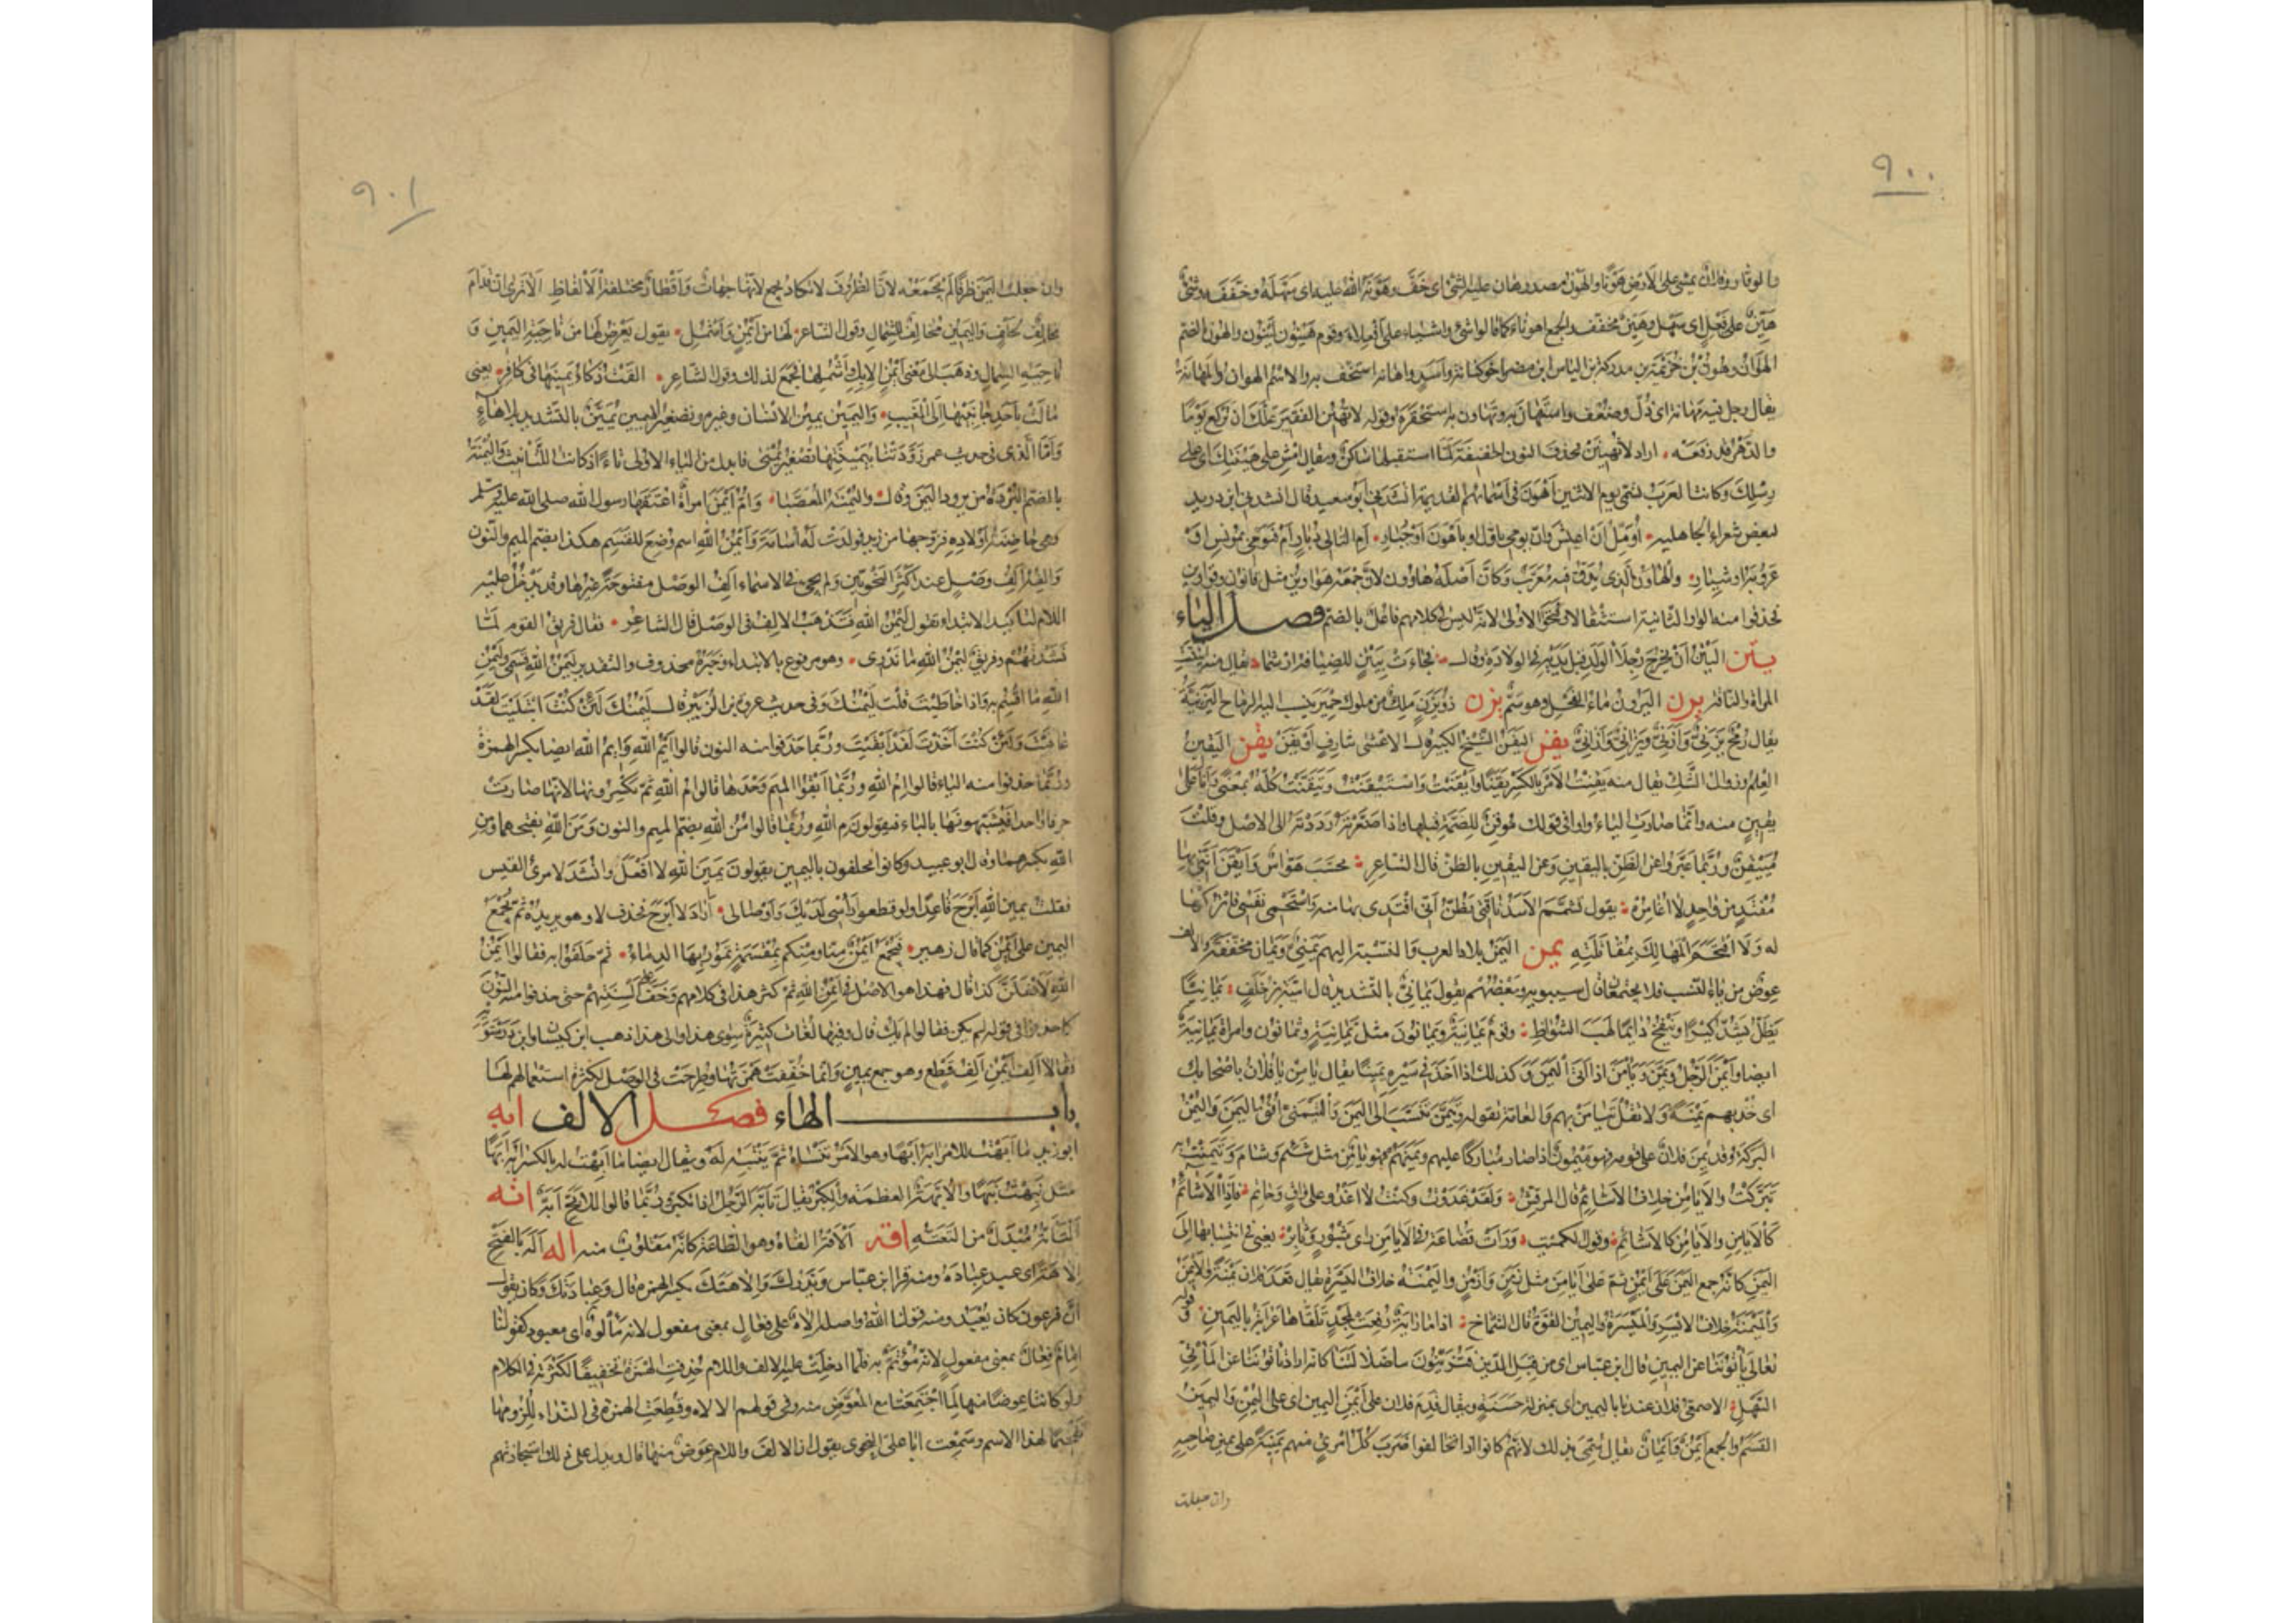 ٩٠٠
والوقار وفلان يمشى على الارض هونا والهون مصدر هان عليه الشئ اى خف وهونه الله عليه اى سهله وخففه وشئ
هين على فيعل اى سهل وهين مخفف والجمع اهوناء كما قالوا شئ واشياء على افعلاء وقوم هينون لينون والهون بالضم
الهوان وهون بن خزيمة بن مدركة بن الياس ابن مضر اخو كنانة واسد واهانه استخف به والاسم الهوان والمهانة
يقال رجل فيه مهانة اى ذل وضعف واستهان به وتهاون به استحقره وقوله لا تهين الفقير علك ان تركع يوما
والدهر قد رفعه اراد لا تهينن فحذف النون الخفيفة لما استقبلها ساكن ويقال امش على هينتك اى على
رسلك وكانت العرب تسمى يوم الاثنين اهون فى اسمائهم القديمة انشدنى ابو سعيد قال انشدنى ابن دريد
لبعض شعراء الجاهلية اؤمل ان اعيش وان يومى باول او باهون او جبار ام التالى دبار ام فيومى بمونس او
عروبة او شيار والهاون الذى يدق فيه معرب وكان اصله هاوون لان جمعه هواوين مثل قانون وقوانين
فحذفوا منه الواو الثانية استثقالا وفتحوا الاولى لانه ليس فى كلامهم فاعل بالضم فصل الياء
يتن اليتن ان يخرج رجلا الولد قبل يديه فى الولادة وقال فجاءت بيتن للضيافة ارشما يقال منه ايتنت
المراة والناقة يرن اليرون ماء الفحل وهو سم يزن ذو يزن ملك من ملوك حمير ينسب اليه الرماح اليزنية
يقال رمح يزنى وازنى ويزانى وازانى يفن اليفن الشيخ الكبير قال الاعشى شارف او يفن يقن اليقين
العلم وزوال الشك يقال منه يقنت الامر بالكسر يقنا وايقنت واستيقنت وتيقنت كله بمعنى وانا على
يقين منه وانما صارت الياء واوا فى قولك موقن للضمة قبلها واذا صغرته رددته الى الاصل وقلت
مييقن وربما عبروا عن الظن باليقين وعن اليقين بالظن قال الشاعر تحسب هواس وايقن اننى بها
مفتد من واحد لا اغامره يقول تشمم الاسد ناقتى يظن انى افتدى بها منه واستحمى نفسى فاتركها
له ولا اقتحم المهالك بمقاتلته يمن اليمن بلاد العرب والنسبة اليهم يمنى ويمان مخففة والالف
عوض من ياء النسب فلا يجتمعان قال سيبويه وبعضهم يقول يمانى بالتشديد قال امية بن خلف يمانيا
يظل يشد كيرا وينفخ دائما لهب الشواظ وقوم يمانية ويمانون مثل ثمانية وثمانون وامراة يمانية
ايضا وايمن الرجل ويمن ويامن اذا اتى اليمن وكذلك اذا اخذ فى سيره يمينا يقال يامن يا فلان باصحابك
اى خذ بهم يمنة ولا تقل تيامن بهم والعامة تقوله وتيمن تنسب الى اليمن والتيمنى افق اليمن واليمن
البركة وقد يمن فلان على قومه فهو ميمون اذا صار مباركا عليهم ويمنهم فهو يامن مثل شئم وشام وتيمنت به
تبركت والايامن خلاف الاشائم قال المرقش ولقد غدوت وكنت لا اغدو على واق وحاتم فاذا الاشائم
كالايامن والايامن كالاشائم وقول الكميت ورات قضاعة فى الايامن راى مثبور وثابر يعنى فى انتسابها الى
اليمن كانه جمع اليمن على ايمن ثم على ايامن مثل زمن وازمن واليمنة خلاف اليسرة يقال قعد فلان يمنة والايمن
والميمنة خلاف الايسر والميسرة واليمين القوة قال الشماخ اذا ما راية رفعت لمجد تلقاها عرابة باليمين وقوله
تعالى تاتوننا عن اليمين قال ابن عباس اى من قبل الدين فتزينون ساضلالتنا كانه اراد تاتوننا عن الماتى
السهل الاصمعى فلان عندنا باليمين اى بمنزلة حسنة ويقال قدم فلان على ايمن اليمين اى على اليمن واليمين
القسم والجمع ايمن وايمان يقال سمى بذلك لانهم كانوا اذا تحالفوا ضرب كل امرئ منهم يمينه على يمين صاحبه
وان جعلت
٩٠١
وان جعلت اليمين ظرفا لم تجمعه لان الظروف لا تكاد تجمع لانها جهات واقطار مختلفة الالفاظ الا ترى ان قدام
مخالف لخلف واليمين مخالف للشمال وقول الشاعر لها من ايمن واشمل يقول يعرض لها من ناحية اليمين و
ناحية الشمال وذهب الى معنى ايمن الابل واشملها فجمع لذلك وقول الشاعر القت ذكاء يمينها فى كافر يعنى
مالت باحد جانبيها الى المغيب واليمين يمين الانسان وغيره وتصغير اليمين يمين بالتشديد بلا هاء
واما الذى فى حديث عمر زودتنا يمينتيها تصغير يمنى فابدل من الياء الاولى تاء اذ كانت للتانيث واليمنة
بالضم البردة من برود اليمن وقال واليمنة المعصبا وام ايمن امراة اعتقها رسول الله صلى الله عليه وسلم
وهى حاضنة اولاده فزوجها من زيد فولدت له اسامة وايمن الله اسم وضع للقسم هكذا بضم الميم والنون
والفه الف وصل عند اكثر النحويين ولم يجئ فى الاسماء الف الوصل مفتوحة غيرها وقد يدخل عليه
اللام لتاكيد الابتداء تقول ليمن الله فتذهب الالف فى الوصل قال الشاعر فقال فريق القوم لما
نشدتهم وفريق ليمن الله ما ندرى وهو مرفوع بالابتداء وخبره محذوف والتقدير ليمن الله قسمى وليمن
الله ما اقسم به واذا خاطبت قلت ليمنك وفى حديث عروة بن الزبير قال ليمنك لئن كنت ابتليت لقد
عافيت ولئن كنت اخذت لقد ابقيت وربما حذفوا منه النون قالوا ايم الله وايم الله ايضا بكسر الهمزة
وربما حذفوا منه الياء قالوا ام الله وربما ابقوا الميم وحدها قالوا م الله ثم تكسرونها لانها صارت
حرفا واحدا فيشبهونها بالباء فيقولون م الله وربما قالوا من الله بضم الميم والنون ومن الله بفتحهما ومن
الله بكسرهما وقال ابو عبيد وكانوا يحلفون باليمين يقولون يمين الله لا افعل وانشد لامرئ القيس
فقلت يمين الله ابرح قاعدا ولو قطعوا راسى لديك واوصالى اراد لا ابرح فحذف لا وهو يريده ثم يجمع
اليمين على ايمن كما قال زهير فتجمع ايمن منا ومنكم بمقسمة تمور بها الدماء ثم حلفوا به فقالوا ايمن
الله لافعلن كذا قال فهذا هو الاصل فى ايمن الله ثم كثر هذا فى كلامهم وخف على السنتهم حتى حذفوا منه النون
كما حذفوا فى قوله لم يكن فقالوا لم يك قال وفيها لغات كثيرة سوى هذا والى هذا ذهب ابن كيسان وابن درستويه
فقالا الف ايمن الف قطع وهو جمع يمين وانما خففت همزتها وطرحت فى الوصل لكثرة استعمالهم لها
باب الهاء فصل الالف ابه
ابو زيد ما ابهت للامر ابه ابها وهو الامر تنساه ثم تنتبه له ويقال ايضا ما ابهت له بالكسر ابه ابها
مثل نبهت نبها والابهة العظمة والكبر يقال تابه الرجل اذا تكبر وربما قالوا للابح ابه اته
التاته مبدل من التعته اقه الاقه القاه وهو الطاعة كانه مقلوب منه اله اله بالفتح
الاهة اى عبد عبادة ومنه قرا ابن عباس ويذرك والاهتك بكسر الهمزة قال وعبادتك وكان يقول
ان فرعون كان يعبد ومنه قولنا الله واصله الاه على فعال بمعنى مفعول لانه مالوه اى معبود كقولنا
امام فعال بمعنى مفعول لانه مؤتم به فلما ادخلت عليه الالف واللام حذفت الهمزة تخفيفا لكثرته فى الكلام
ولو كانتا عوضا منها لما اجتمعتا مع المعوض منه فى قولهم الالاه وقطعت الهمزة فى النداء للزومها
تفخيما لهذا الاسم وسمعت ابا على النحوى يقول ان الالف واللام عوض منها قال ويدل على ذلك استجازتهم